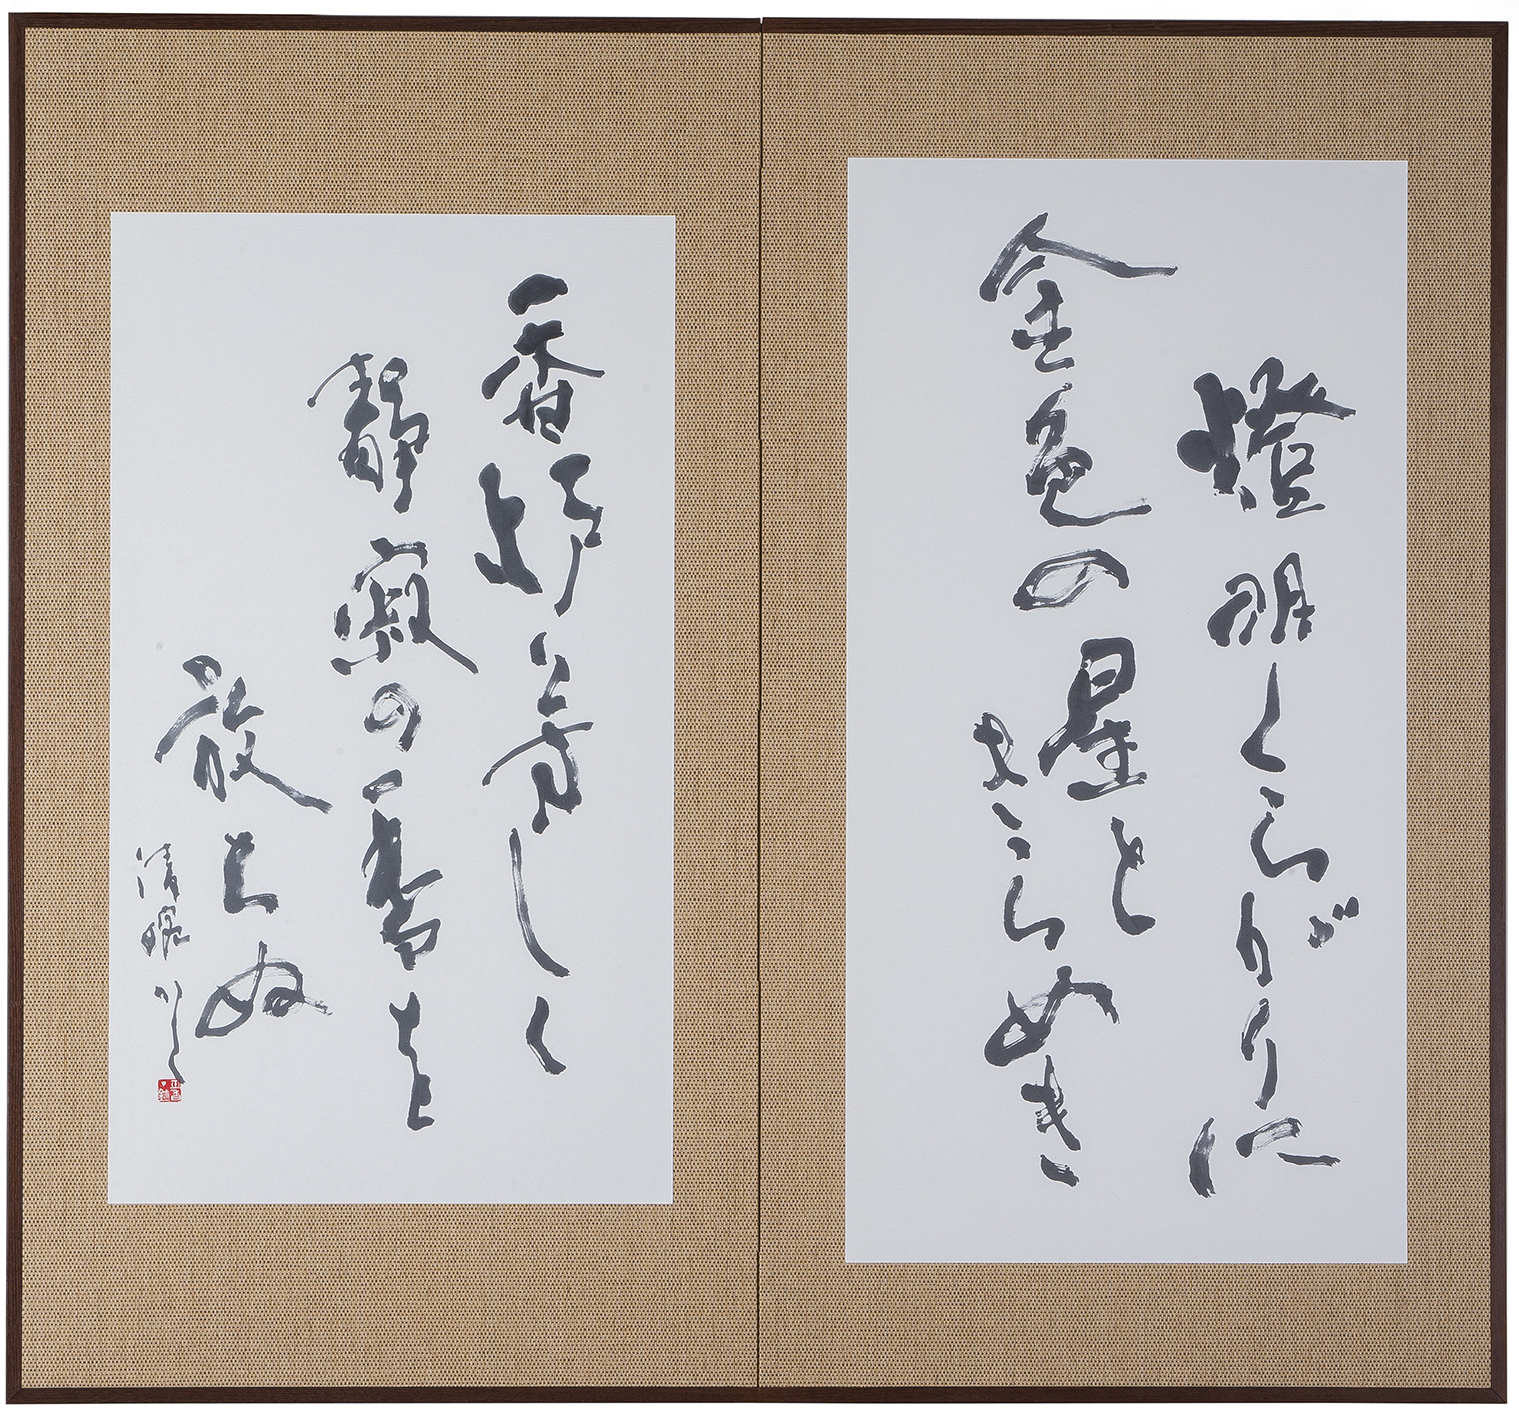 燈明くらがりに
金色の星と
きらめき
香炉芳しく
静寂の香を
放ちぬ